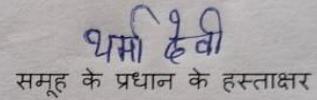 धर्मा देवी
समूह के प्रधान के हस्ताक्षर